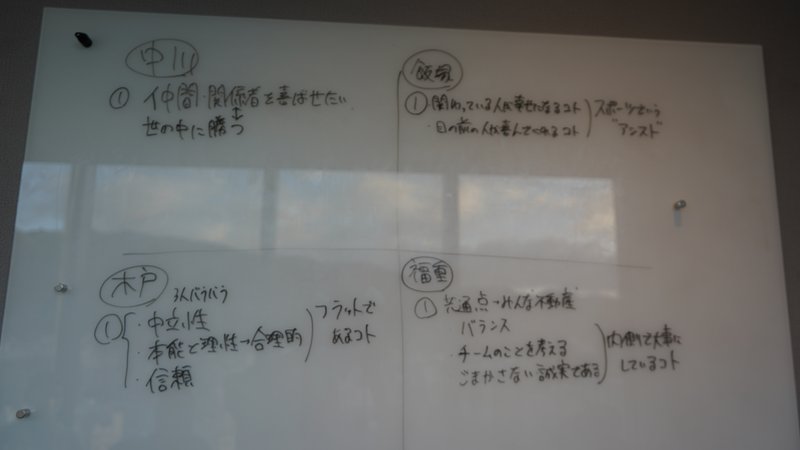 中川
① 仲間・関係者を喜ばせたい
世の中に勝つ
飯塚
① 関わっている人が幸せになるコト
・目の前の人が喜んでくれるコト
スポーツという
"アシスト"
木戸
3人バラバラ
① ・中立性
・本能と理性→合理的
・信頼
フラットで
あるコト
福重
① 共通点→みんな不動産
バランス
・チームのことを考える
ごまかさない 誠実である
内側で大事に
しているコト